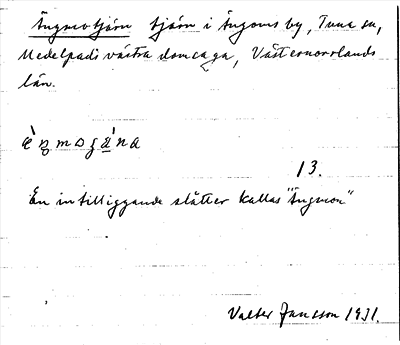 Ängmotjärn tjärn i Ängoms by, Tuna sn,
Medelpads västra domsaga, Västernorrlands
län.
13.
En intilliggande slåtter kallas "Ängmon"
Valter Jansson 1931.